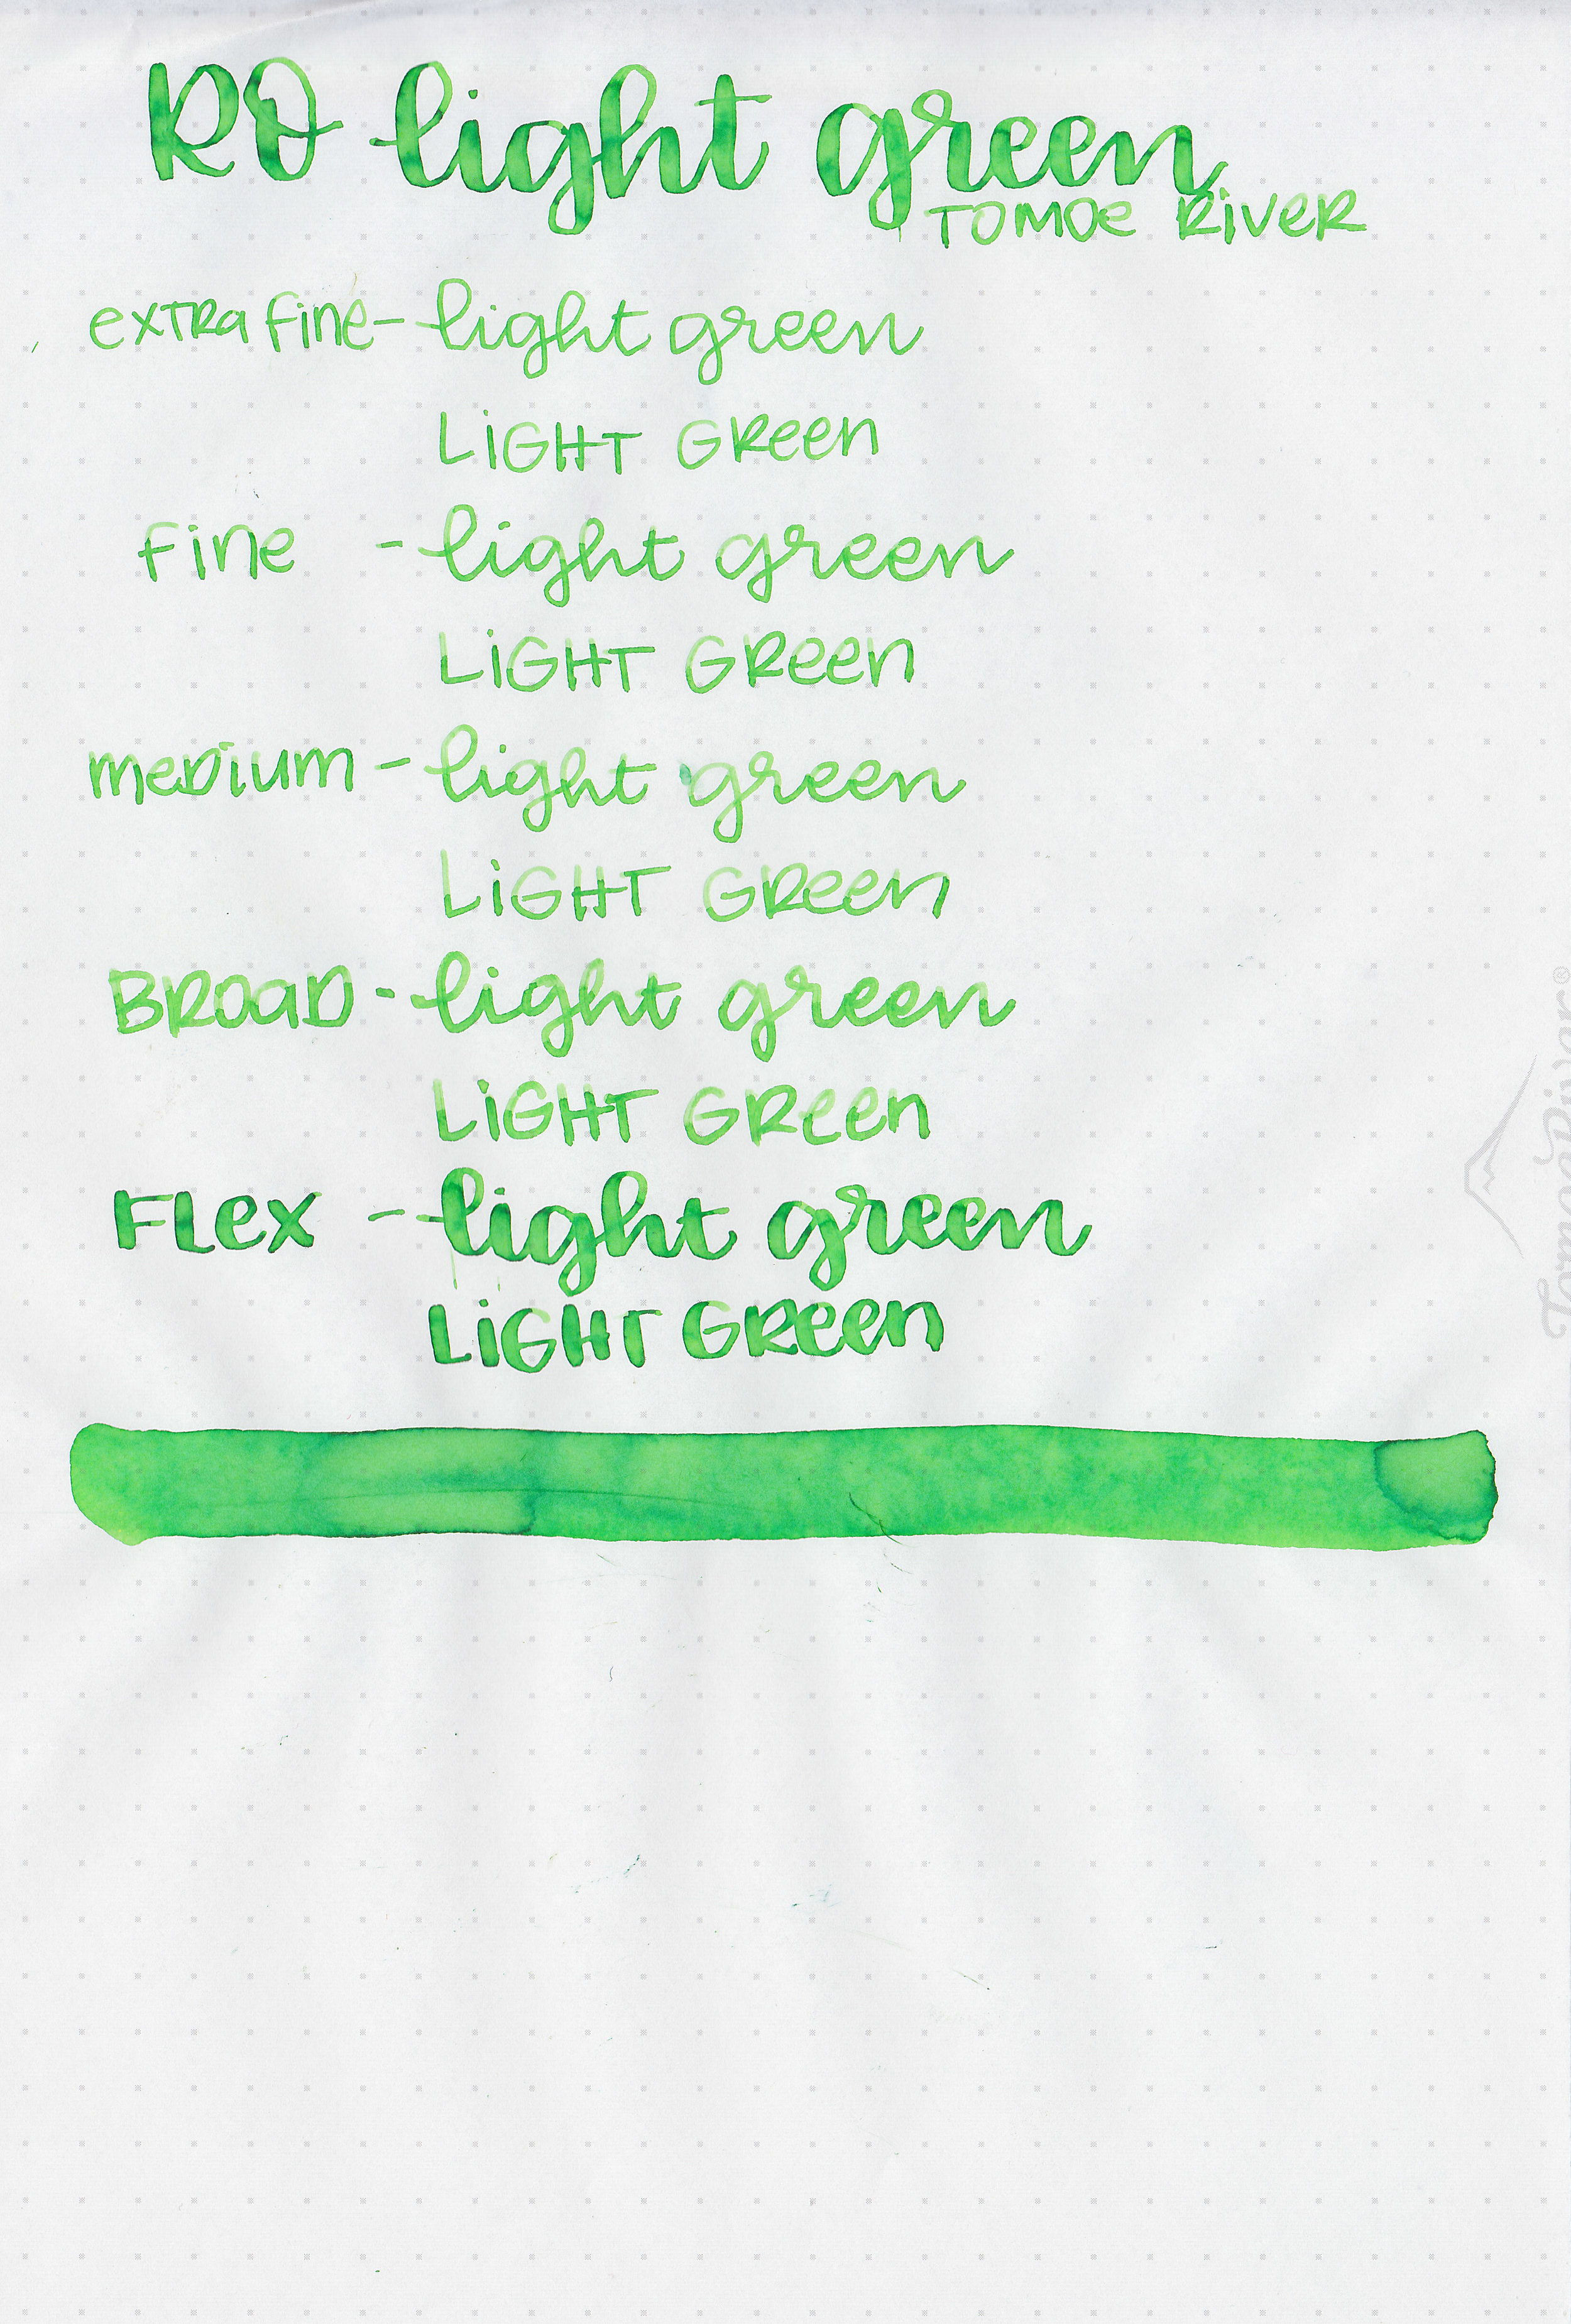 RO light green
TOMOE RiVER
exTRa Fine - light green
LiGHT GReen
Fine - light green
LiGHT GReen
meDium - light green
LiGHT GReen
BROaD - light green
LiGHT GReen
FLex - light green
LiGHT GReen
TomoeRiver®